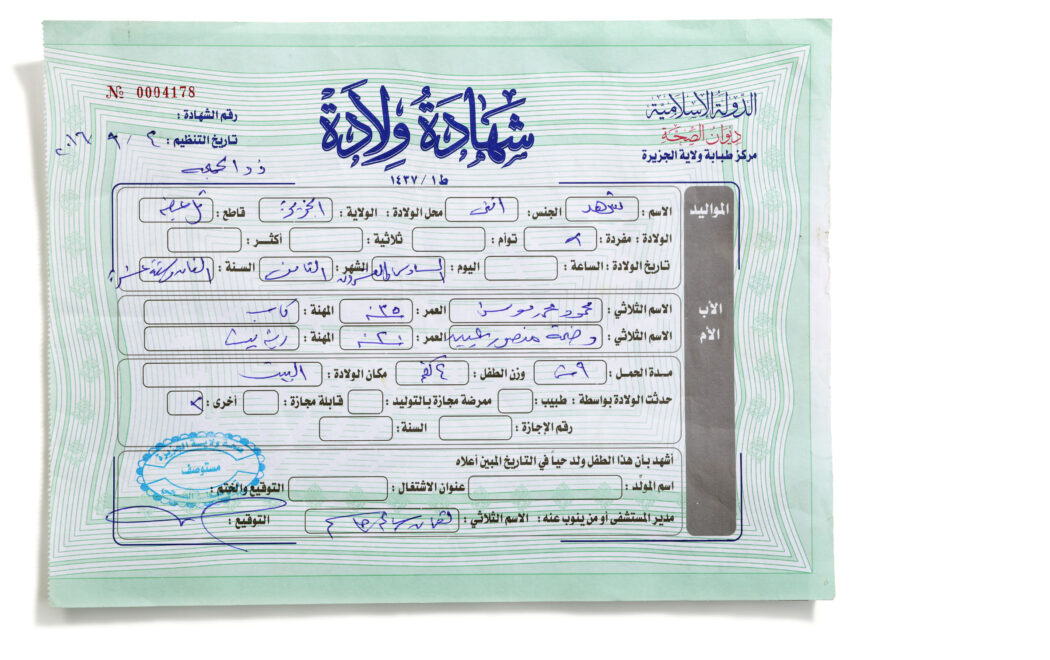 № 0004178
شهادة ولادة
الدولة الإسلامية
ديوان الصحة
مركز طبابة ولاية الجزيرة
رقم الشهادة :
تاريخ التنظيم : ٤ / ٩ / ٢٠١٦
ط١ / ١٤٣٧
المواليد
الاسم : شهد الجنس : انثى محل الولادة : الولاية : الجزيرة قاطع :
الولادة : مفردة : توأم : ثلاثية : أكثر :
تاريخ الولادة : الساعة : اليوم : السادس والعشرون الشهر : الثامن السنة :
الأب
الاسم الثلاثي : محمود محمد موسى العمر : ٣٥ سنة المهنة : كاسب
الأم
الاسم الثلاثي : وضحة منصور العمر : ٢٠ سنة المهنة : ربة بيت
مدة الحمل : ٩ وزن الطفل : ٤ كغم مكان الولادة : البيت
حدثت الولادة بواسطة : طبيب : ممرضة مجازة بالتوليد : قابلة مجازة : أخرى :
رقم الإجازة : السنة :
أشهد بأن هذا الطفل ولد حياً في التاريخ المبين أعلاه
اسم المولّد : عنوان الاشتغال : التوقيع والختم :
مدير المستشفى أو من ينوب عنه : الاسم الثلاثي : التوقيع :
صحة ولاية الجزيرة
مستوصف